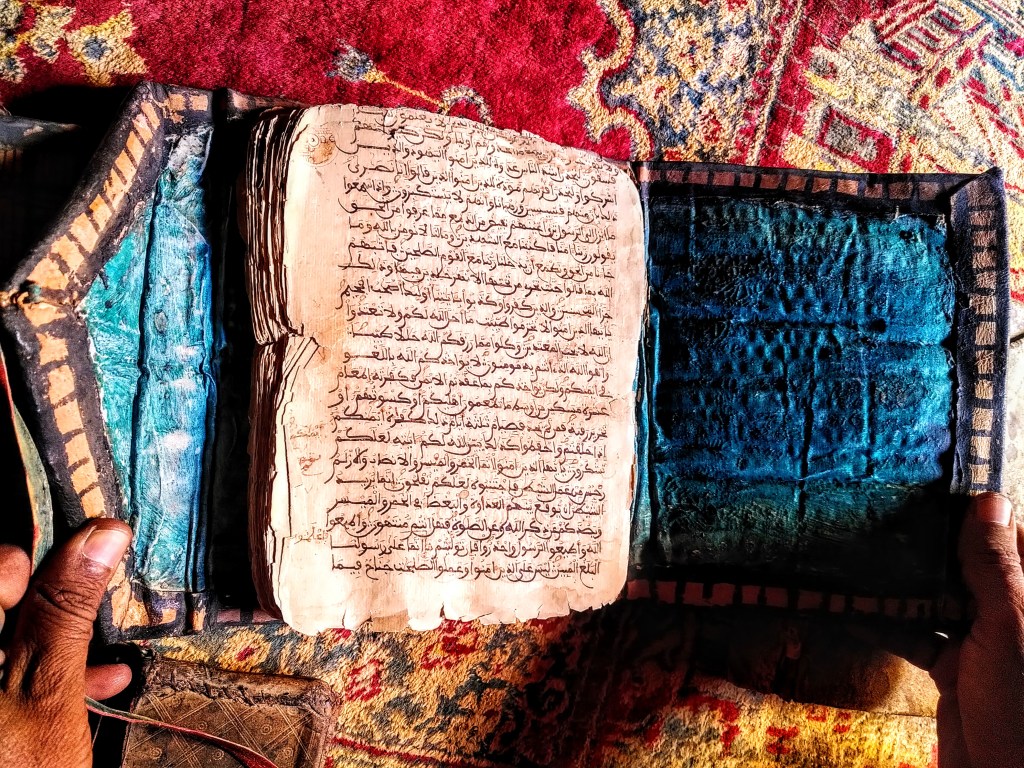 الناس عداوة للذين امنوا اليهود والذين
اشركوا ولتجدن اقربهم مودة للذين امنوا الذين قالوا انا نصرى
ذلك بان منهم قسيسين ورهبانا وانهم لا يستكبرون واذا سمعوا
ما انزل الى الرسول ترى اعينهم تفيض من الدمع مما عرفوا من الحق
يقولون ربنا امنا فاكتبنا مع الشهدين وما لنا لا نومن بالله وما
جانا من الحق ونطمع ان يدخلنا ربنا مع القوم الصلحين فاثبهم
الله بما قالوا جنت تجري من تحتها الانهر خلدين فيها وذلك
جزا المحسنين والذين كفروا وكذبوا بايتنا اوليك اصحب الجحيم
يايها الذين امنوا لا تحرموا طيبت ما احل الله لكم ولا تعتدوا
ان الله لا يحب المعتدين وكلوا مما رزقكم الله حللا طيبا
واتقوا الله الذي انتم به مومنون لا يواخذكم الله باللغو
في ايمنكم ولكن يواخذكم بما عقدتم الايمن فكفرته اطعام
عشرة مسكين من اوسط ما تطعمون اهليكم او كسوتهم او
تحرير رقبة فمن لم يجد فصيام ثلثة ايام ذلك كفرة ايمنكم
اذا حلفتم واحفظوا ايمنكم كذلك يبين الله لكم ايته لعلكم
تشكرون يايها الذين امنوا انما الخمر والميسر والانصاب والازلم
رجس من عمل الشيطن فاجتنبوه لعلكم تفلحون انما يريد
الشيطن ان يوقع بينكم العدوة والبغضا في الخمر والميسر
ويصدكم عن ذكر الله وعن الصلوة فهل انتم منتهون واطيعوا
الله واطيعوا الرسول واحذروا فان توليتم فاعلموا انما على رسولنا
البلغ المبين ليس على الذين امنوا وعملوا الصلحت جناح فيما